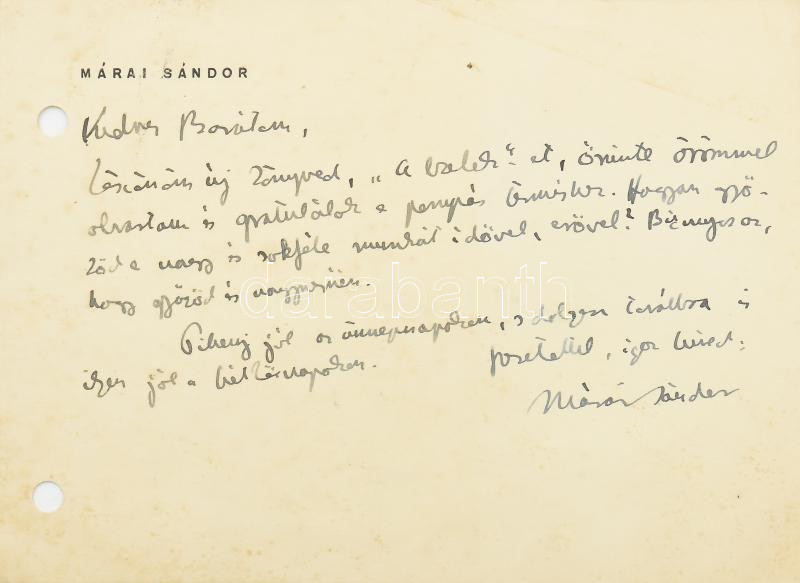 MÁRAI SÁNDOR
Kedves Barátom,
köszönöm új könyved, „A
őszinte örömmel
olvastam és gratulálok a pompás terméshez. Hogyan győ-
zöd a nagy és sokféle munkát idővel, erővel? Bizonyos az,
hogy győzöd és nagyszerűen.
Pihenj jól az ünnepnapokon, s dolgozz továbbra is
ilyen jól a hétköznapokon.
szeretettel, igaz híved:
Márai Sándor
darabanth